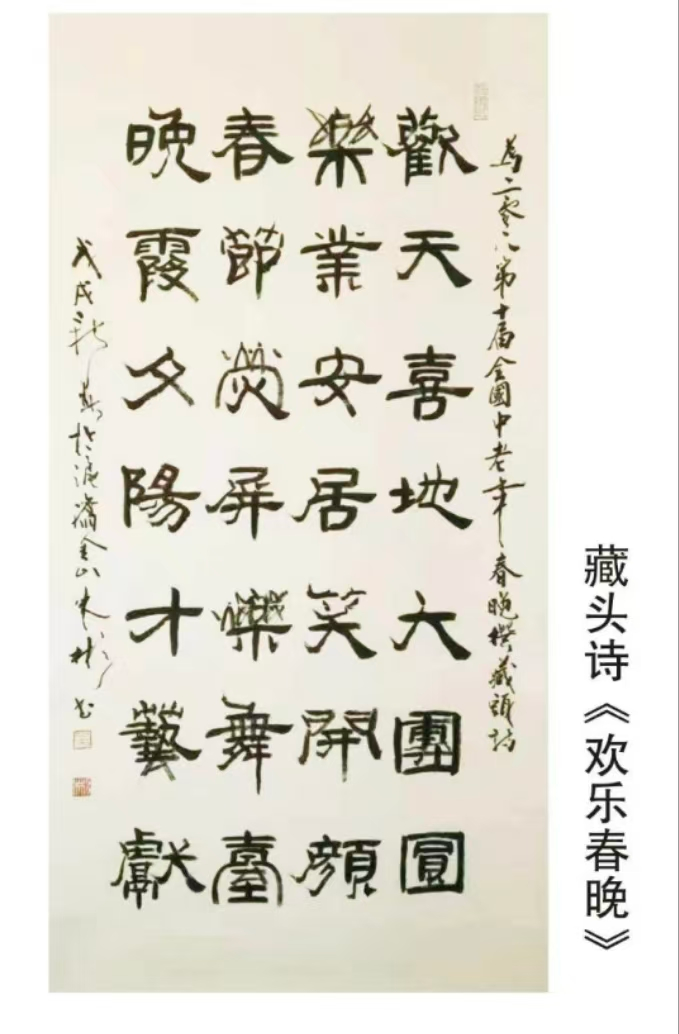 藏头诗《欢乐春晚》
為二零一八第十届全國中老年春晚撰藏頭詩
歡天喜地大團圓
樂業安居笑開顏
春節熒屏爍舞臺
晚霞夕陽才藝獻
戊戌新春於滬金山朱彬书